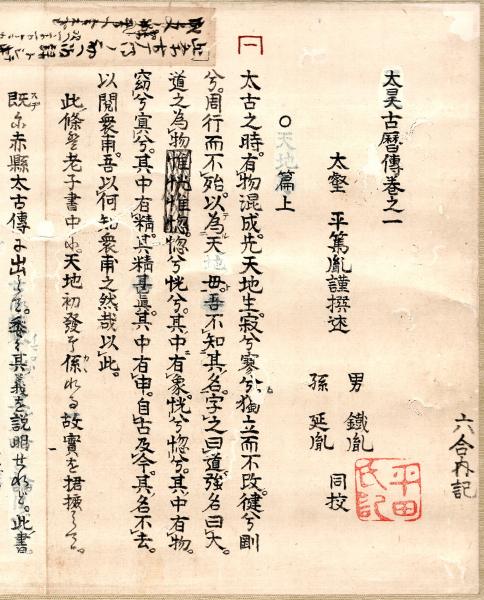 太昊古曆傳卷之一
太壑 平篤胤謹撰述
男 鐵胤
孫 延胤 同校
平田氏記
一
〇天地篇上
太古之時。有物混成。先天地生。寂兮寥兮。獨立而不改。健兮剛
兮。周行而不殆。以為天地母。吾不知其名。字之曰道。強名曰大。
道之為物。惟恍惟惚。惚兮恍兮。其中有象。恍兮惚兮。其中有物。
窈兮冥兮。其中有精。其精甚眞。其中有申。自古及今。其名不去。
以閲衆甫。吾以何知衆甫之然哉。以此。
此條は老子書中に。天地初發に係れる故實を捃摭
既に赤縣太古傳に出して。其義を説明せれど。此書